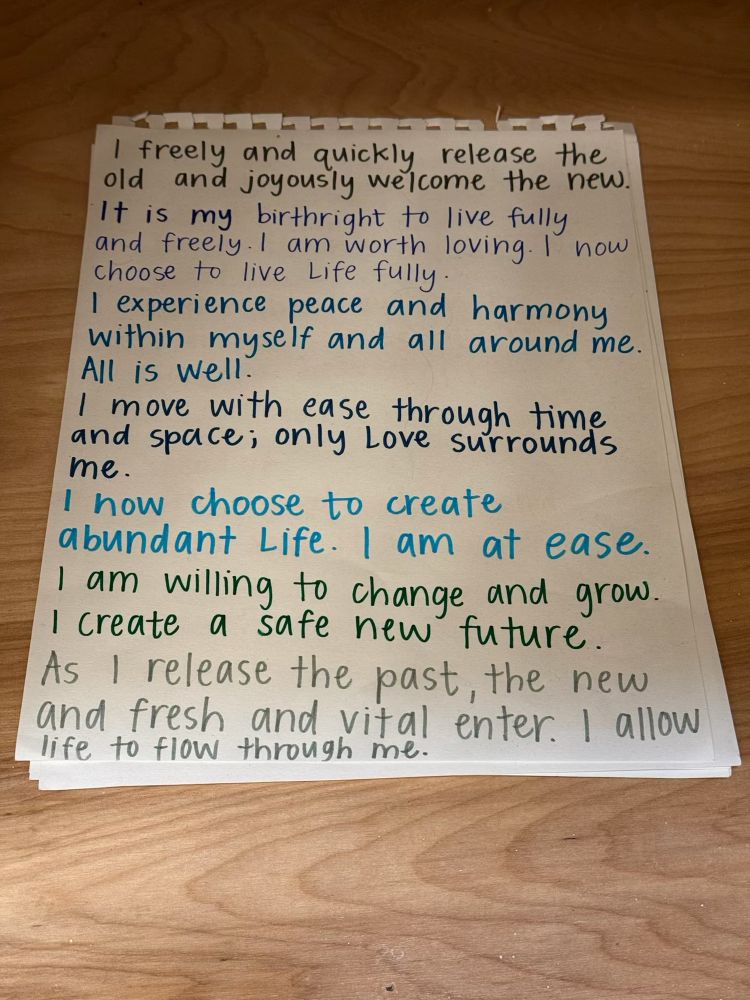 I freely and quickly release the
old and joyously welcome the new.
It is my birthright to live fully
and freely. I am worth loving. I now
choose to live Life fully.
I experience peace and harmony
within myself and all around me.
All is well.
I move with ease through time
and space; only Love surrounds
me.
I now choose to create
abundant Life. I am at ease.
I am willing to change and grow.
I create a safe new future.
As I release the past, the new
and fresh and vital enter. I allow
life to flow through me.